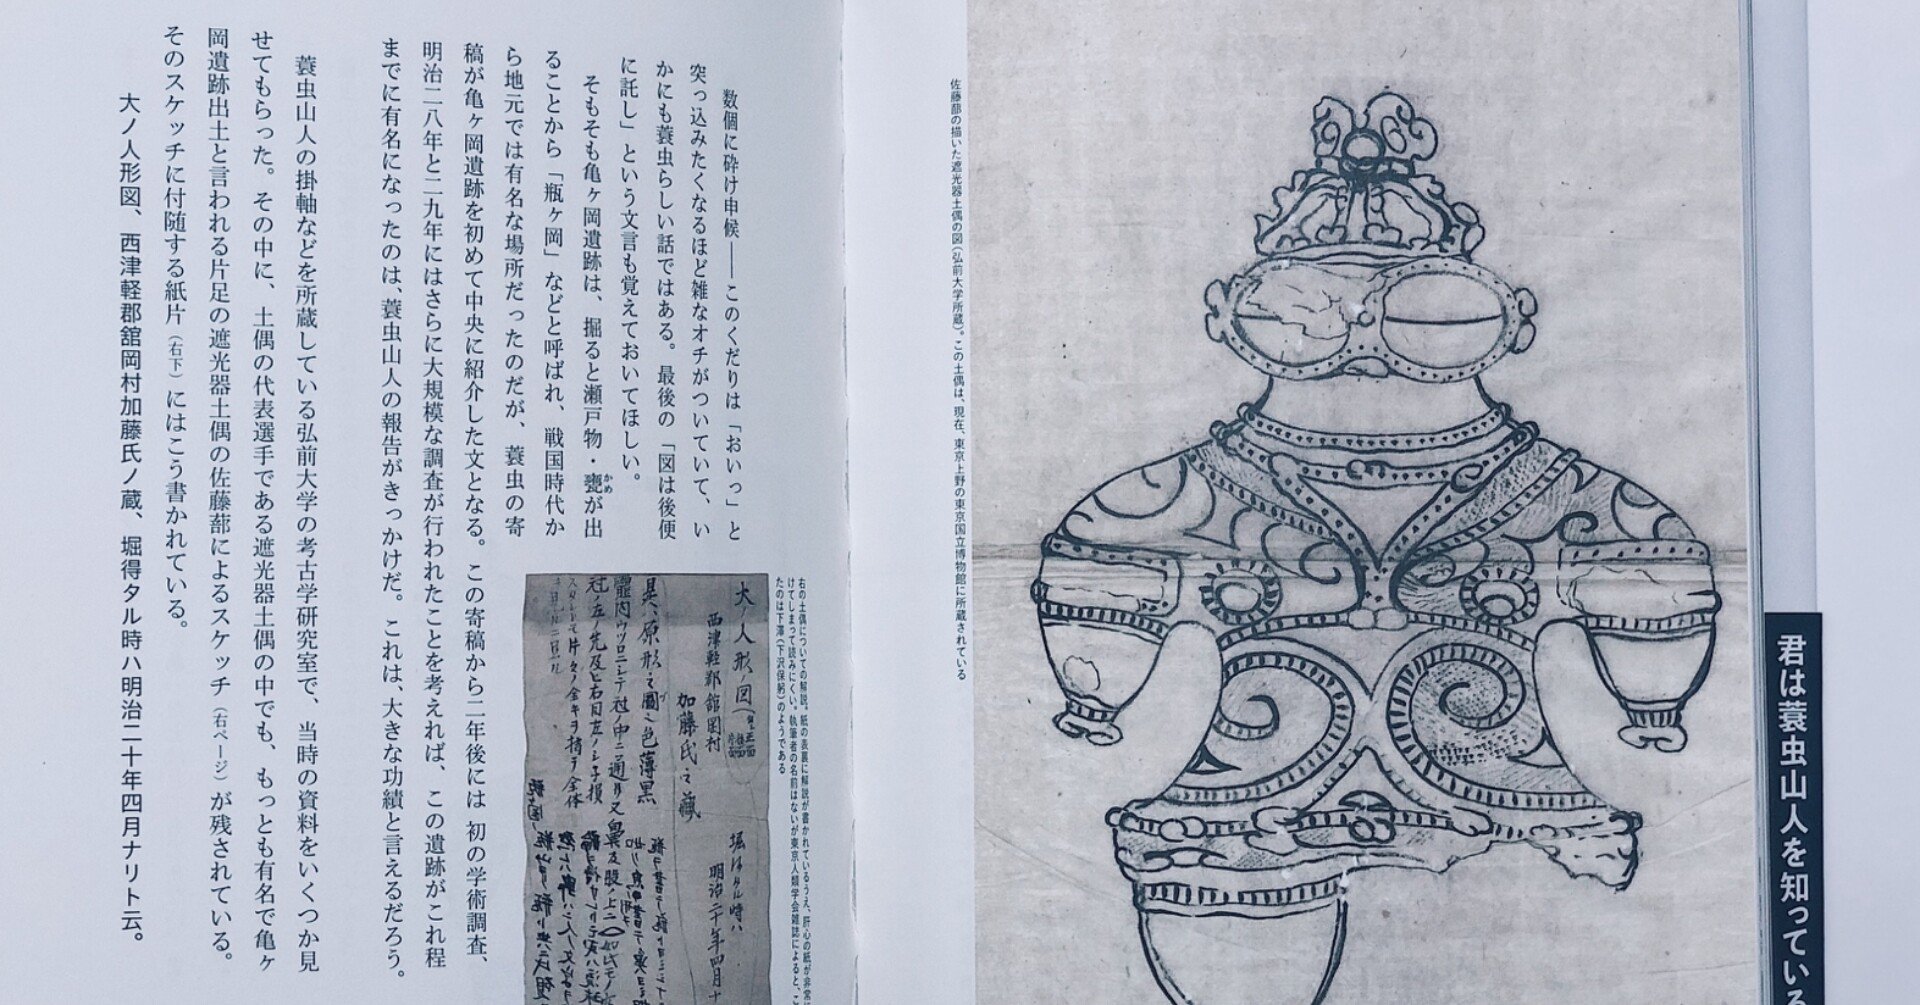 君は蓑虫山人を知ってい
佐藤蔀の描いた遮光器土偶の図(弘前大学所蔵)。この土偶は、現在、東京上野の東京国立博物館に所蔵されている
数個に砕け申候——このくだりは「おいっ」と
突っ込みたくなるほど雑なオチがついていて、い
かにも蓑虫らしい話ではある。最後の「図は後便
に託し」という文言も覚えておいてほしい。
そもそも亀ヶ岡遺跡は、掘ると瀬戸物・甕が出
かめ
ることから「瓶ヶ岡」などと呼ばれ、戦国時代か
ら地元では有名な場所だったのだが、蓑虫の寄
稿が亀ヶ岡遺跡を初めて中央に紹介した文となる。この寄稿から二年後には初の学術調査、
明治二八年と二九年にはさらに大規模な調査が行われたことを考えれば、この遺跡がこれ程
までに有名になったのは、蓑虫山人の報告がきっかけだ。これは、大きな功績と言えるだろう。
蓑虫山人の掛軸などを所蔵している弘前大学の考古学研究室で、当時の資料をいくつか見
せてもらった。その中に、土偶の代表選手である遮光器土偶の中でも、もっとも有名で亀ヶ
岡遺跡出土と言われる片足の遮光器土偶の佐藤蔀によるスケッチ(右ページ)が残されている。
そのスケッチに付随する紙片(右下)にはこう書かれている。
大ノ人形図、西津軽郡舘岡村加藤氏ノ蔵、堀得タル時ハ明治二十年四月ナリト云。
右の土偶についての解説。紙の表裏に解説が書かれているうえ、肝心の紙が非常
けてしまって読みにくい。執筆者の名前はないが東京人類学会雑誌によると、こ
たのは下澤(下沢保躬)のようである
大人形ノ図
西津軽郡舘岡村
加藤氏之蔵
堀得タル時ハ
明治二十年四月
其ハ原形之圖
色薄黒